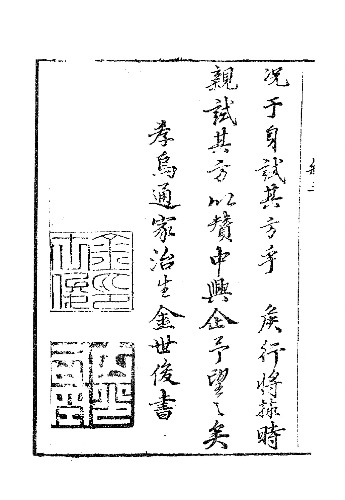 况于身試其方乎　矦行將據時
親試其方以贊中興企予望之矣
孝烏通家治生金世俊書